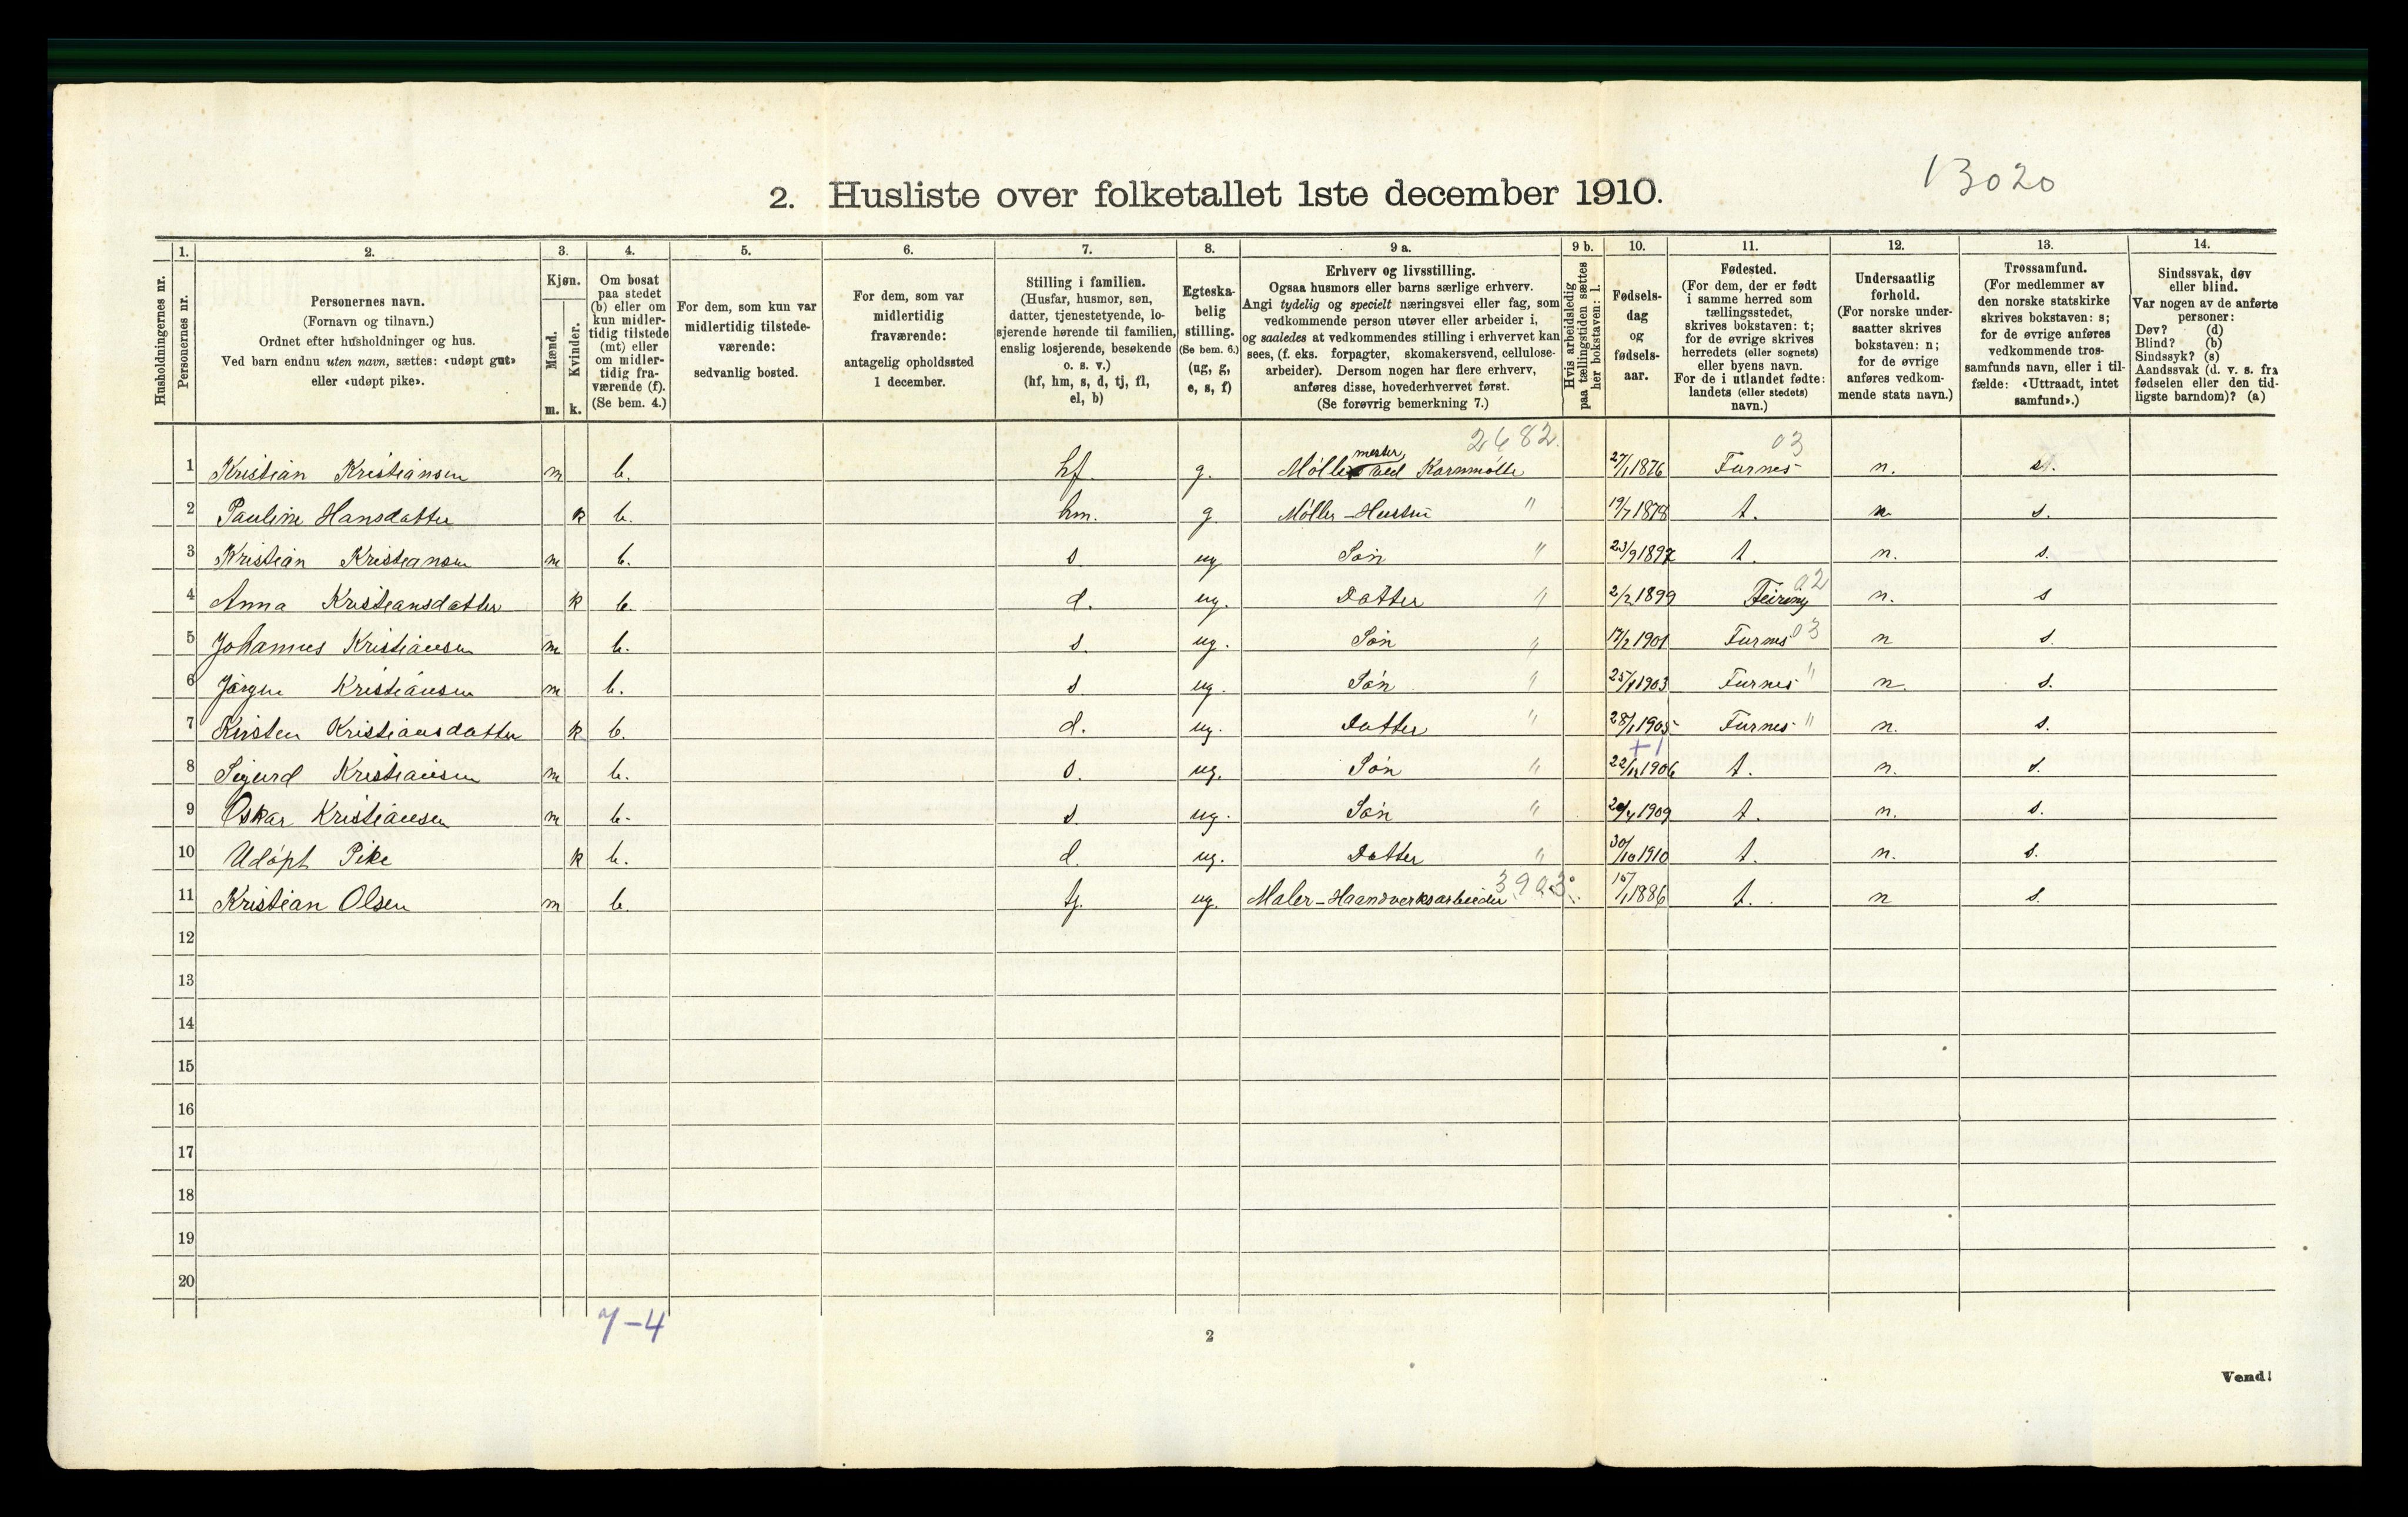 13020
2. Husliste over folketallet 1ste december 1910.
Husholdningernes nr.
1.
Personernes nr.
2.
Personernes navn.
(Fornavn og tilnavn.)
Ordnet efter husholdninger og hus.
Ved barn endnu uten navn, sættes: «udøpt gut»
eller «udøpt pike».
3.
Kjøn.
Mænd.
Kvinder.
m. k.
4.
Om bosat
paa stedet
(b) eller om
kun midler-
tidig tilstede
(mt) eller
om midler-
tidig fra-
værende (f).
(Se bem. 4.)
5.
For dem, som kun var
midlertidig tilstede-
værende:
sedvanlig bosted.
6.
For dem, som var
midlertidig
fraværende:
antagelig opholdssted
1 december.
7.
Stilling i familien.
(Husfar, husmor, søn,
datter, tjenestetyende, lo-
sjerende hørende til familien,
enslig losjerende, besøkende
o. s. v.)
(hf, hm, s, d, tj, fl,
el, b)
8.
Egteska-
belig
stilling.
(Se bem. 6.)
(ug, g,
e, s, f)
9 a.
Erhverv og livsstilling.
Ogsaa husmors eller barns særlige erhverv.
Angi tydelig og specielt næringsvei eller fag, som
vedkommende person utøver eller arbeider i,
og saaledes at vedkommendes stilling i erhvervet kan
sees, (f. eks. forpagter, skomakersvend, cellulose-
arbeider). Dersom nogen har flere erhverv,
anføres disse, hovederhvervet først.
(Se forøvrig bemerkning 7.)
9 b.
Hvis arbeidsledig
paa tællingstiden sættes
her bokstaven: l.
10.
Fødsels-
dag
og
fødsels-
aar.
11.
Fødested.
(For dem, der er født
i samme herred som
tællingsstedet,
skrives bokstaven: t;
for de øvrige skrives
herredets (eller sognets)
eller byens navn.
For de i utlandet fødte:
landets (eller stedets)
navn.)
12.
Undersaatlig
forhold.
(For norske under-
saatter skrives
bokstaven: n;
for de øvrige
anføres vedkom-
mende stats navn.)
13.
Trossamfund.
(For medlemmer av
den norske statskirke
skrives bokstaven: s;
for de øvrige anføres
vedkommende tros-
samfunds navn, eller i til-
fælde: «Uttraadt, intet
samfund».)
14.
Sindssvak, døv
eller blind.
Var nogen av de anførte
personer:
Døv? (d)
Blind? (b)
Sindssyk? (s)
Aandssvak (d. v. s. fra
fødselen eller den tid-
ligste barndom)? (a)
2682. 03
1 Kristian Kristiansen m b. hf. g. Møllemester ved Kornmølle 27/1 1876 Furnes n. s.
2 Pauline Hansdatter k b. hm. g Møller-Hustru " 19/7 1878 t. n s.
3 Kristian Kristiansen m b. s ug Søn " 23/9 1897 t. n. s.
4 Anna Kristiansdatter k b. d. ug. Datter " 2/2 1899 Feiring 02 n. s
5 Johannes Kristiansen m b. s. ug. Søn " 17/2 1901 Furnes 03 n s.
6 Jørgen Kristiansen m b. s ug. Søn " 1903 Furnes " n. s.
7 Kirsten Kristiansdatter k b. d. ug. Datter " 28/1 1905 Furnes " n. s.
+1
8 Sigurd Kristiansen m b. s. ug. Søn " 22/12 1906 t. n. s.
9 Oskar Kristiansen m b. s. ug. Søn " 1909 t. n. s.
10 Udøpt Pike k b. d. ug. Datter " 30/10 1910 t. n. s.
11 Kristian Olsen m b. tj. ug. Maler-Haandverksarbeider 3903 15/1 1886 t. n s.
12
13
14
15
16
17
18
19
20
7-4
2
Vend!